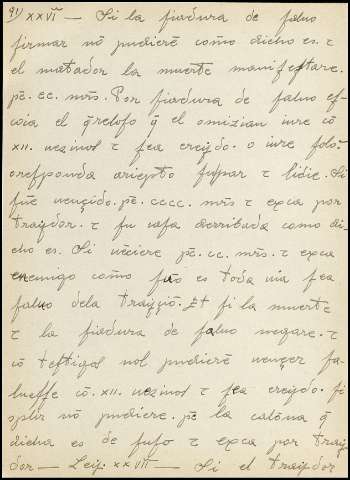 91) XXVI — Si la fiadura de saluo
firmar nō pudierē como dicho es. τ
el matador la muerte manifestare.
pē. cc. mrs. Por fiadura de saluo es-
coia el q̄reloso q̄ el omizian iure cō
XII. uezinos τ sea creydo. o iure solo.
o responda a riepto su par τ lidie. Si
fuē uençido. pē. cccc. mrs τ exca por
traydor. τ su casa derribada como di-
cho es. Si uēciere pē. cc. mrs. τ exca
enemigo como es toda uia sea
saluo dela trayçiō. Et si la muerte
τ la fiadura de saluo negare. τ
cō testigos nol pudierē uençer sa-
luesse cō. XII. uezinos τ sea creydo. si
nō pudiere. pē la caloña q̄
dicha es de suso τ exca por tray-
dor — Ley. XXVII — Si el traydor